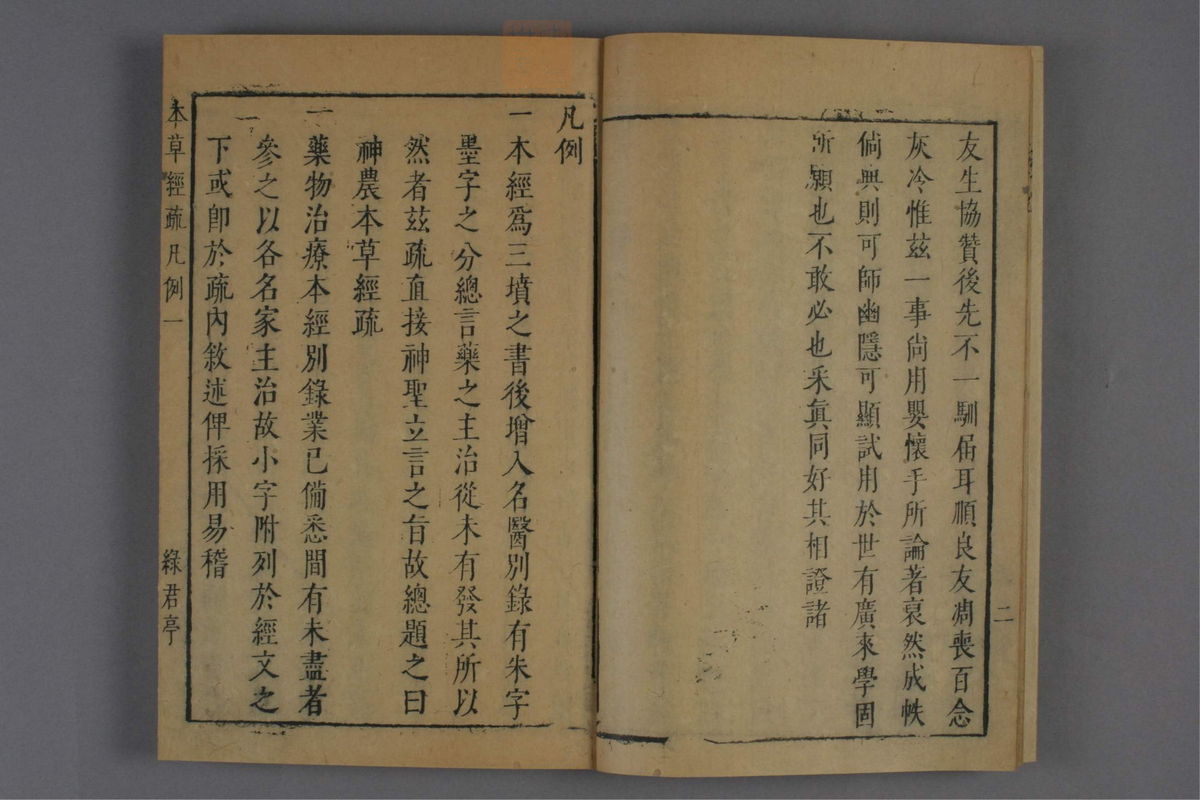 友生協贊後先不一馴届耳順良友凋喪百念
灰冷惟兹一事尚用嬰懷手所論著裒然成帙
倘興則可師幽隱可顯試用於世有廣來學固
所願也不敢必也采真同好其相證諸
二
凡例
一本經爲三墳之書後增入名醫別錄有朱字
墨字之分總言藥之主治從未有發其所以
然者兹疏直接神聖立言之旨故總題之曰
神農本草經疏
一藥物治療本經別錄業已備悉間有未盡者
參之以各名家主治故小字附列於經文之
下或卽於疏內敘述俾採用易稽
本草經疏凡例一
綠君亭